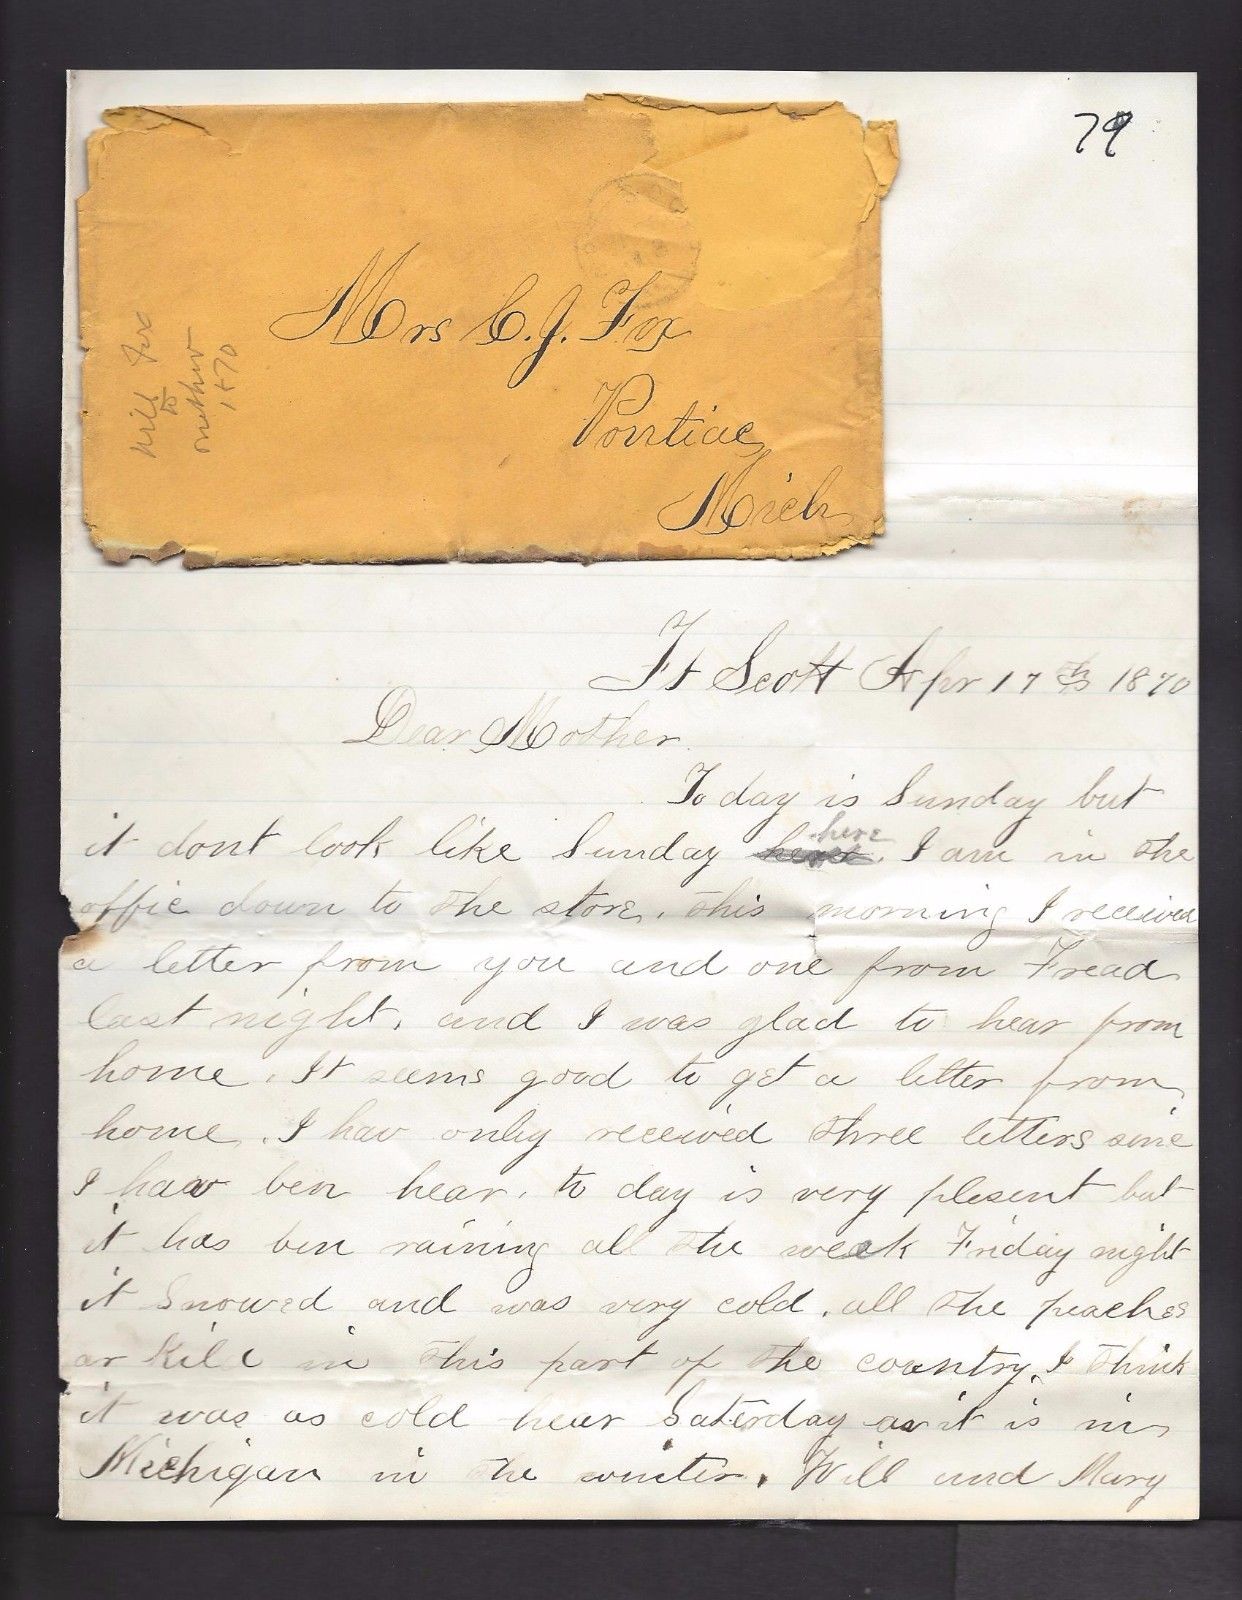 79
Mrs C. J. Fox
Pontiac
Mich
Will Fox
to
mother
1870
Ft Scott Apr 17th 1870
Dear Mother
To day is Sunday but
it dont look like Sunday here. I am in the
offic down to the store. this morning I received
a letter from you and one from Fread
last night. and I was glad to hear from
home. It seems good to get a letter from
home. I hav only received three letters sinc
I hav ben hear. to day is very plesent but
it has ben raining all the week Friday night
it Snowed and was very cold. all the peaches
ar Kild in this part of the country. I think
it was as cold hear Saterday as it is in
Michigan in the winter. Will and Mary